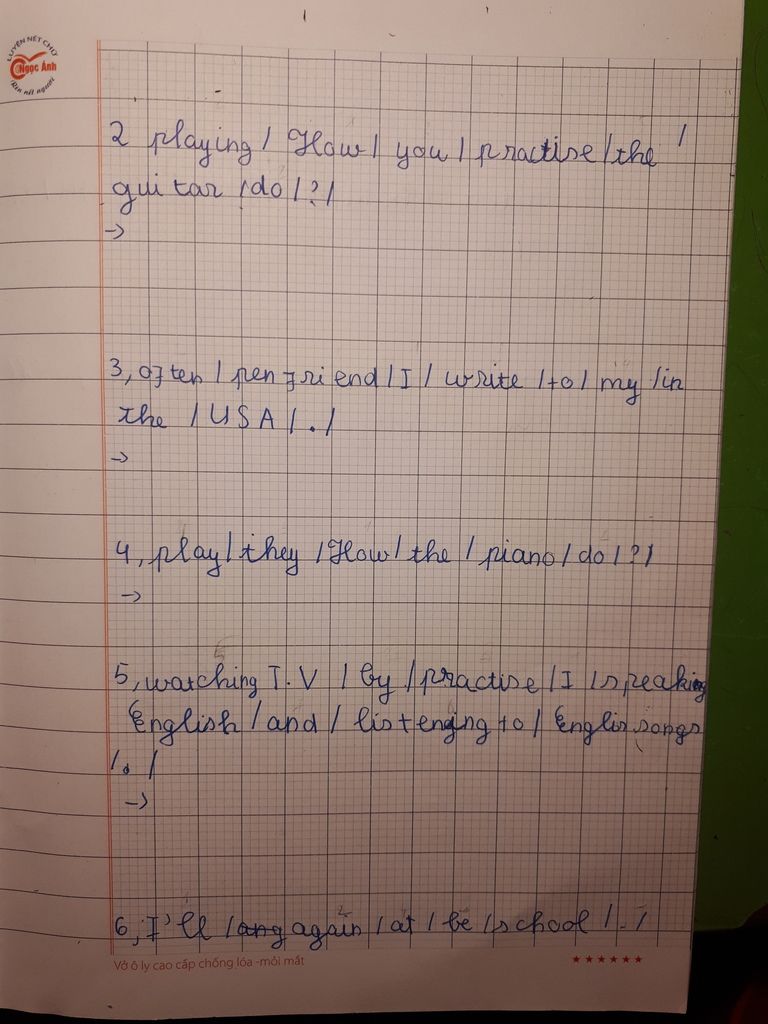 LUYỆN NÉT CHỮ
Ngọc Ánh
Rèn nết người
2 playing / How / you / practise / the /
guitar / do / ? /
->
3, often / penfriend / I / write / to / my / in
the / USA / . /
->
4, play / they / How / the / piano / do / ? /
->
5, watching T.V / by / practise / I / speaking
English / and / listenging to / Englis songs
/ . /
->
6, I'll / again / at / be / school / . /
Vở ô ly cao cấp chống lóa -mỏi mắt
★★★★★★